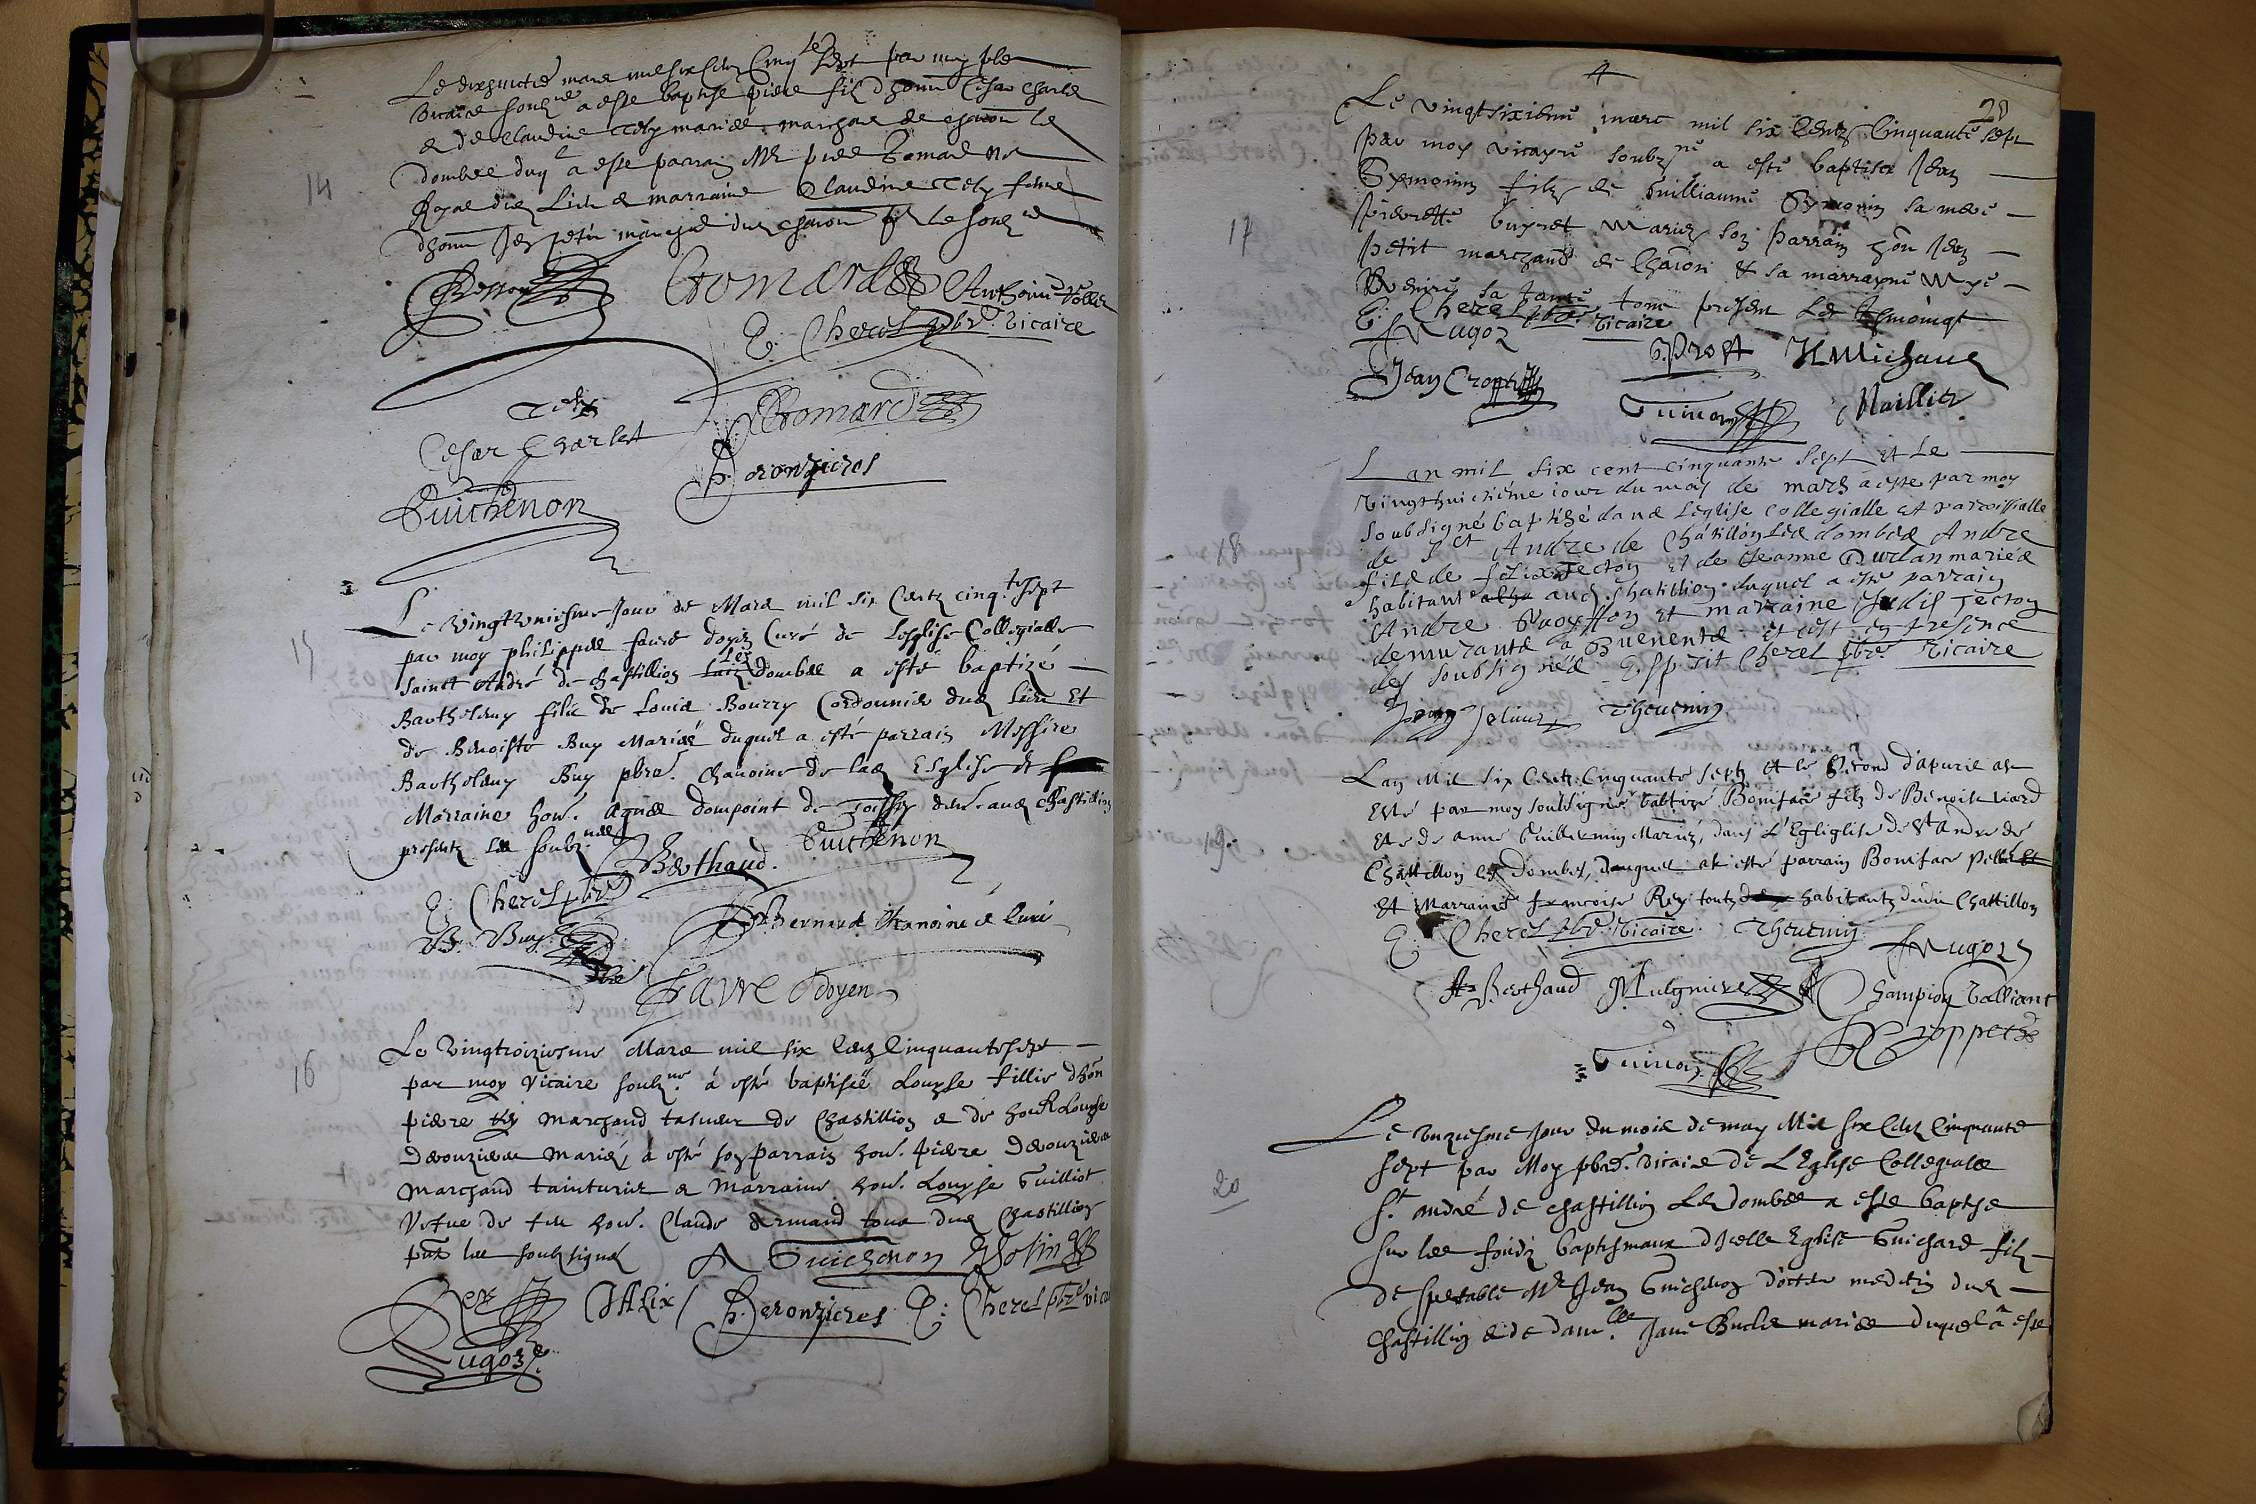 14
Le dixhuictie mars mil six Centz Cinq.te Sept par moy pbre
vicaire soubz.né a este baptise piere filz d'honn Cesar Charlet
& de Claudine Tely mariés marchant de chaon le
dombes duq.l a este parrain Mr piere Gomard no.re
Royal dud Lieu & marraine Claudine Tely feme
d'honn Jea petit marchant dud chaon le soubz
Gomard Anthoinne
E: Cherel pbre. vicaire
Tely
Cesar Charlet
Gomard
P. Deronzieres
Guichenon
15
Le vingt uniesme Jour de Mars mil six Centz cinq.te sept
par moy philippes favre doyen Curé de Lesglise Collegialle
sainct André de chastillion les dombes a esté baptizé
Barthelemy filz de Louis Bourry Cordonnier dud lieu Et
de Benoiste Buy Mariés duquel a esté parrain Messire
Barthelemy Buy pbre. chanoine de lad Esglise et
Marraine hon. Agnes dompoint de aud chastillion
presentz les soubz.nés
Berthaud. Guichenon
E: Cherel pbre
B. Buy
Bernard Chanoine é Curé
Favre doyen
16
Le vingtroiziesme Mars mil six Centz Cinquante sept
par moy vicaire soubz.né á esté baptiséé Louyse fillie d'hon
piere Rey marchand taneur de Chastillion & de hon Louyse
Deronzieres mariés, á esté son parrain hon. piere Deronzieres
marchand tainturier & marraine hon. Louyse Guilliot
vefve de feu hon. Claude Armand tous dud Chastillion
pntz les soubzsignés
A Guichenon
Rey JAlix P. Deronzieres E: Cherel pbre vica
Lugoz
4
20
17
Le vingtsixiéme mars mil six Centz Cinquante sept
par moy vicayre soubz.né a esté baptisé Jean
Symonin filz de Guilliaume Symonin sa mere
pierrette buyret Mariez son parrain hon Jean
petit marchand de Chaon & sa marrayne
sa tante tous present les tesmoingt
E: Cherel pbre. vicaire
Lugoz
G. Prost H Michaud
Jean Cropet
Guinon Maillier
18
Lan mil six cent cinquante sept et le
vingthuictiéme iour du mois de mars a esté par moy
soubsigné baptisé dans Léglise collegialle et parroissialle
de S.ct André de Chátillon Les dombes André
fils de felix Tecton et de Jeanne Durlan mariés
habitant aud Chatillion duquel a esté parrain
André Guoyffon et marraine Tecton
demurante a Buenent et cest en presence
des soubsignés E.sprit Cherel pbre. vicaire
Thevenin
19
Lan Mil six Centz Cinquante septz et le second d'apvril at
Esté par moy soubsigné babtizé Boniface filz de Benoist viard
Et de anne Guillermin Mariez, dans L'Egliglise de St andré de
Chattillon les dombes, duquel at esté parrain Boniface Pellet
Et Marraine francoise Rey toutz habitantz dudit Chattillon
E: Cherel pbre. Vicaire. Thevenin
Lugoz
A Berthaud Champion
Cropper
Guinon
20
Le unziesme jour du mois de may Mil six Centz Cinquante
sept par Moy pbre. vicaire de L'Eglise Collegiale
St. andré de chastillion Les dombes a este baptise
sur les fondz baptismaux d'Icelle Eglise Guichard filz
de spectable Mr Jean Guichenon docteur medecin dud
chastillion & de dam.lle mariés duquel a esté